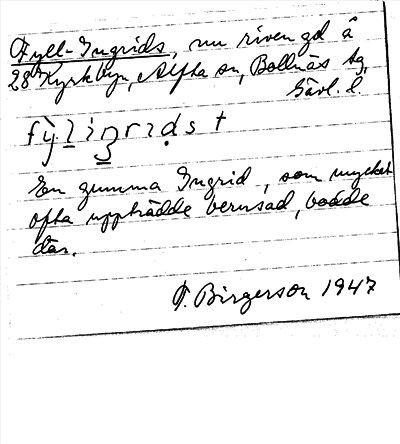 Fyll-Ingrids, nu riven gd å
28 Kyrkbyn, Alfta sn, Bollnäs tg,
Gävl. l
En gumma Ingrid, som mycket
ofta uppträdde berusad, bodde
där.
T. Birgerson 1947